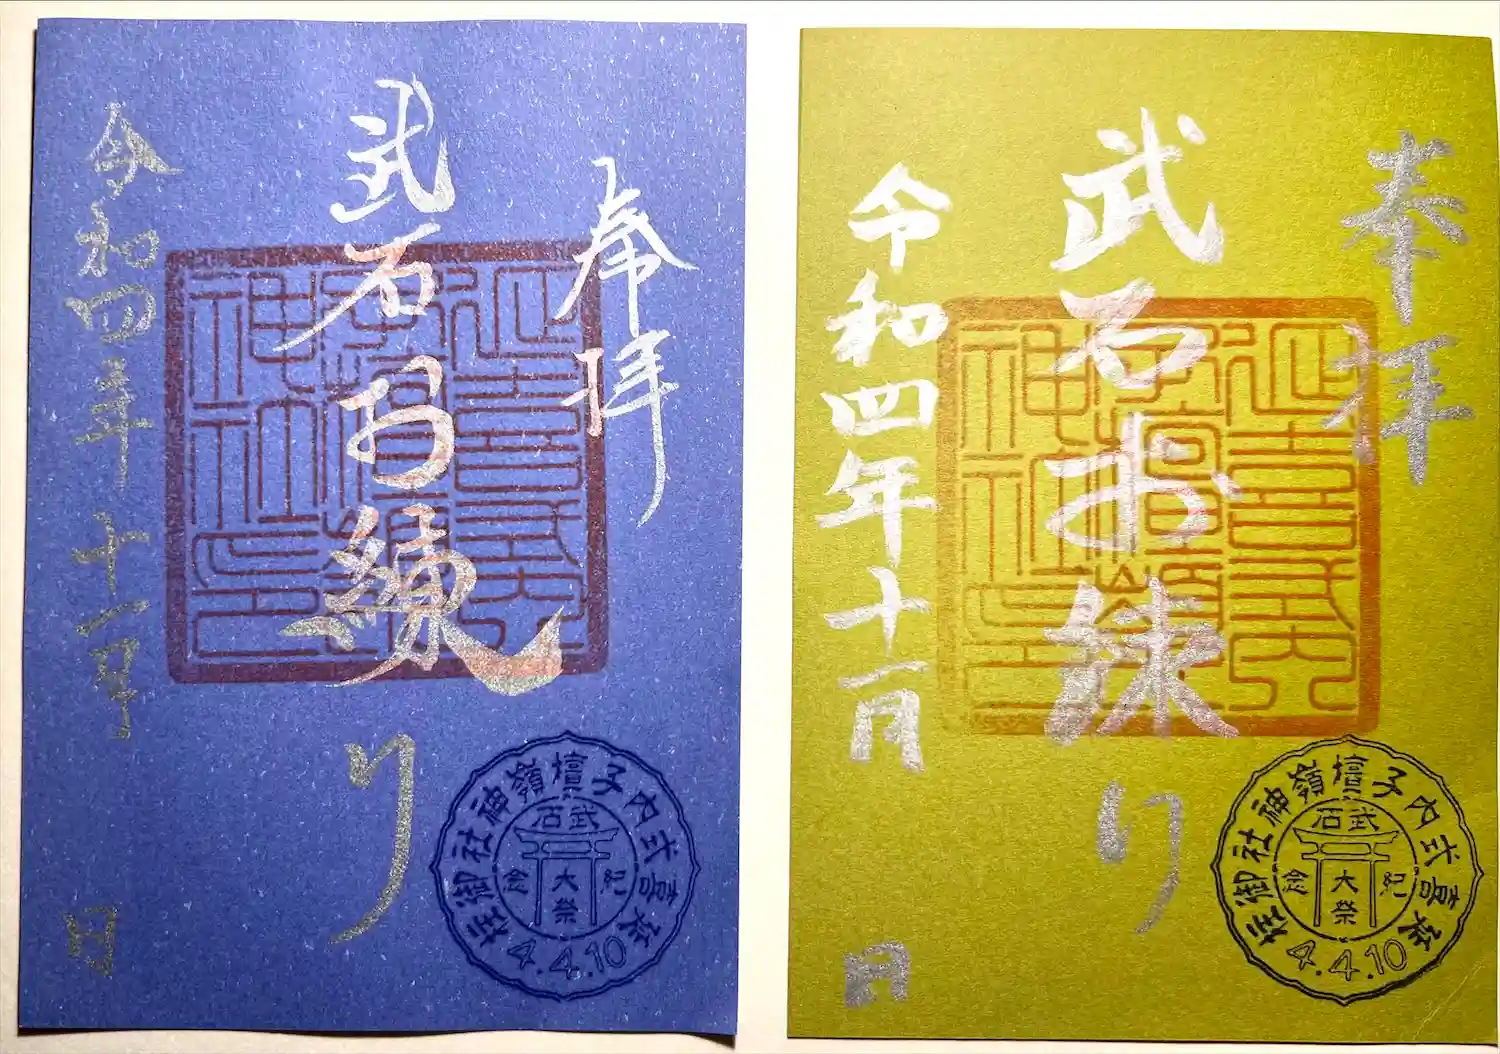 奉拝
武石お練り
令和四年十一月 日
延喜式内
子檀嶺
神社印
延喜式内子壇嶺神社御柱
武石
大祭
記念
4.4.10
奉拝
武石お練り
令和四年十一月 日
延喜式内
子檀嶺
神社印
延喜式内子壇嶺神社御柱
武石
大祭
記念
4.4.10